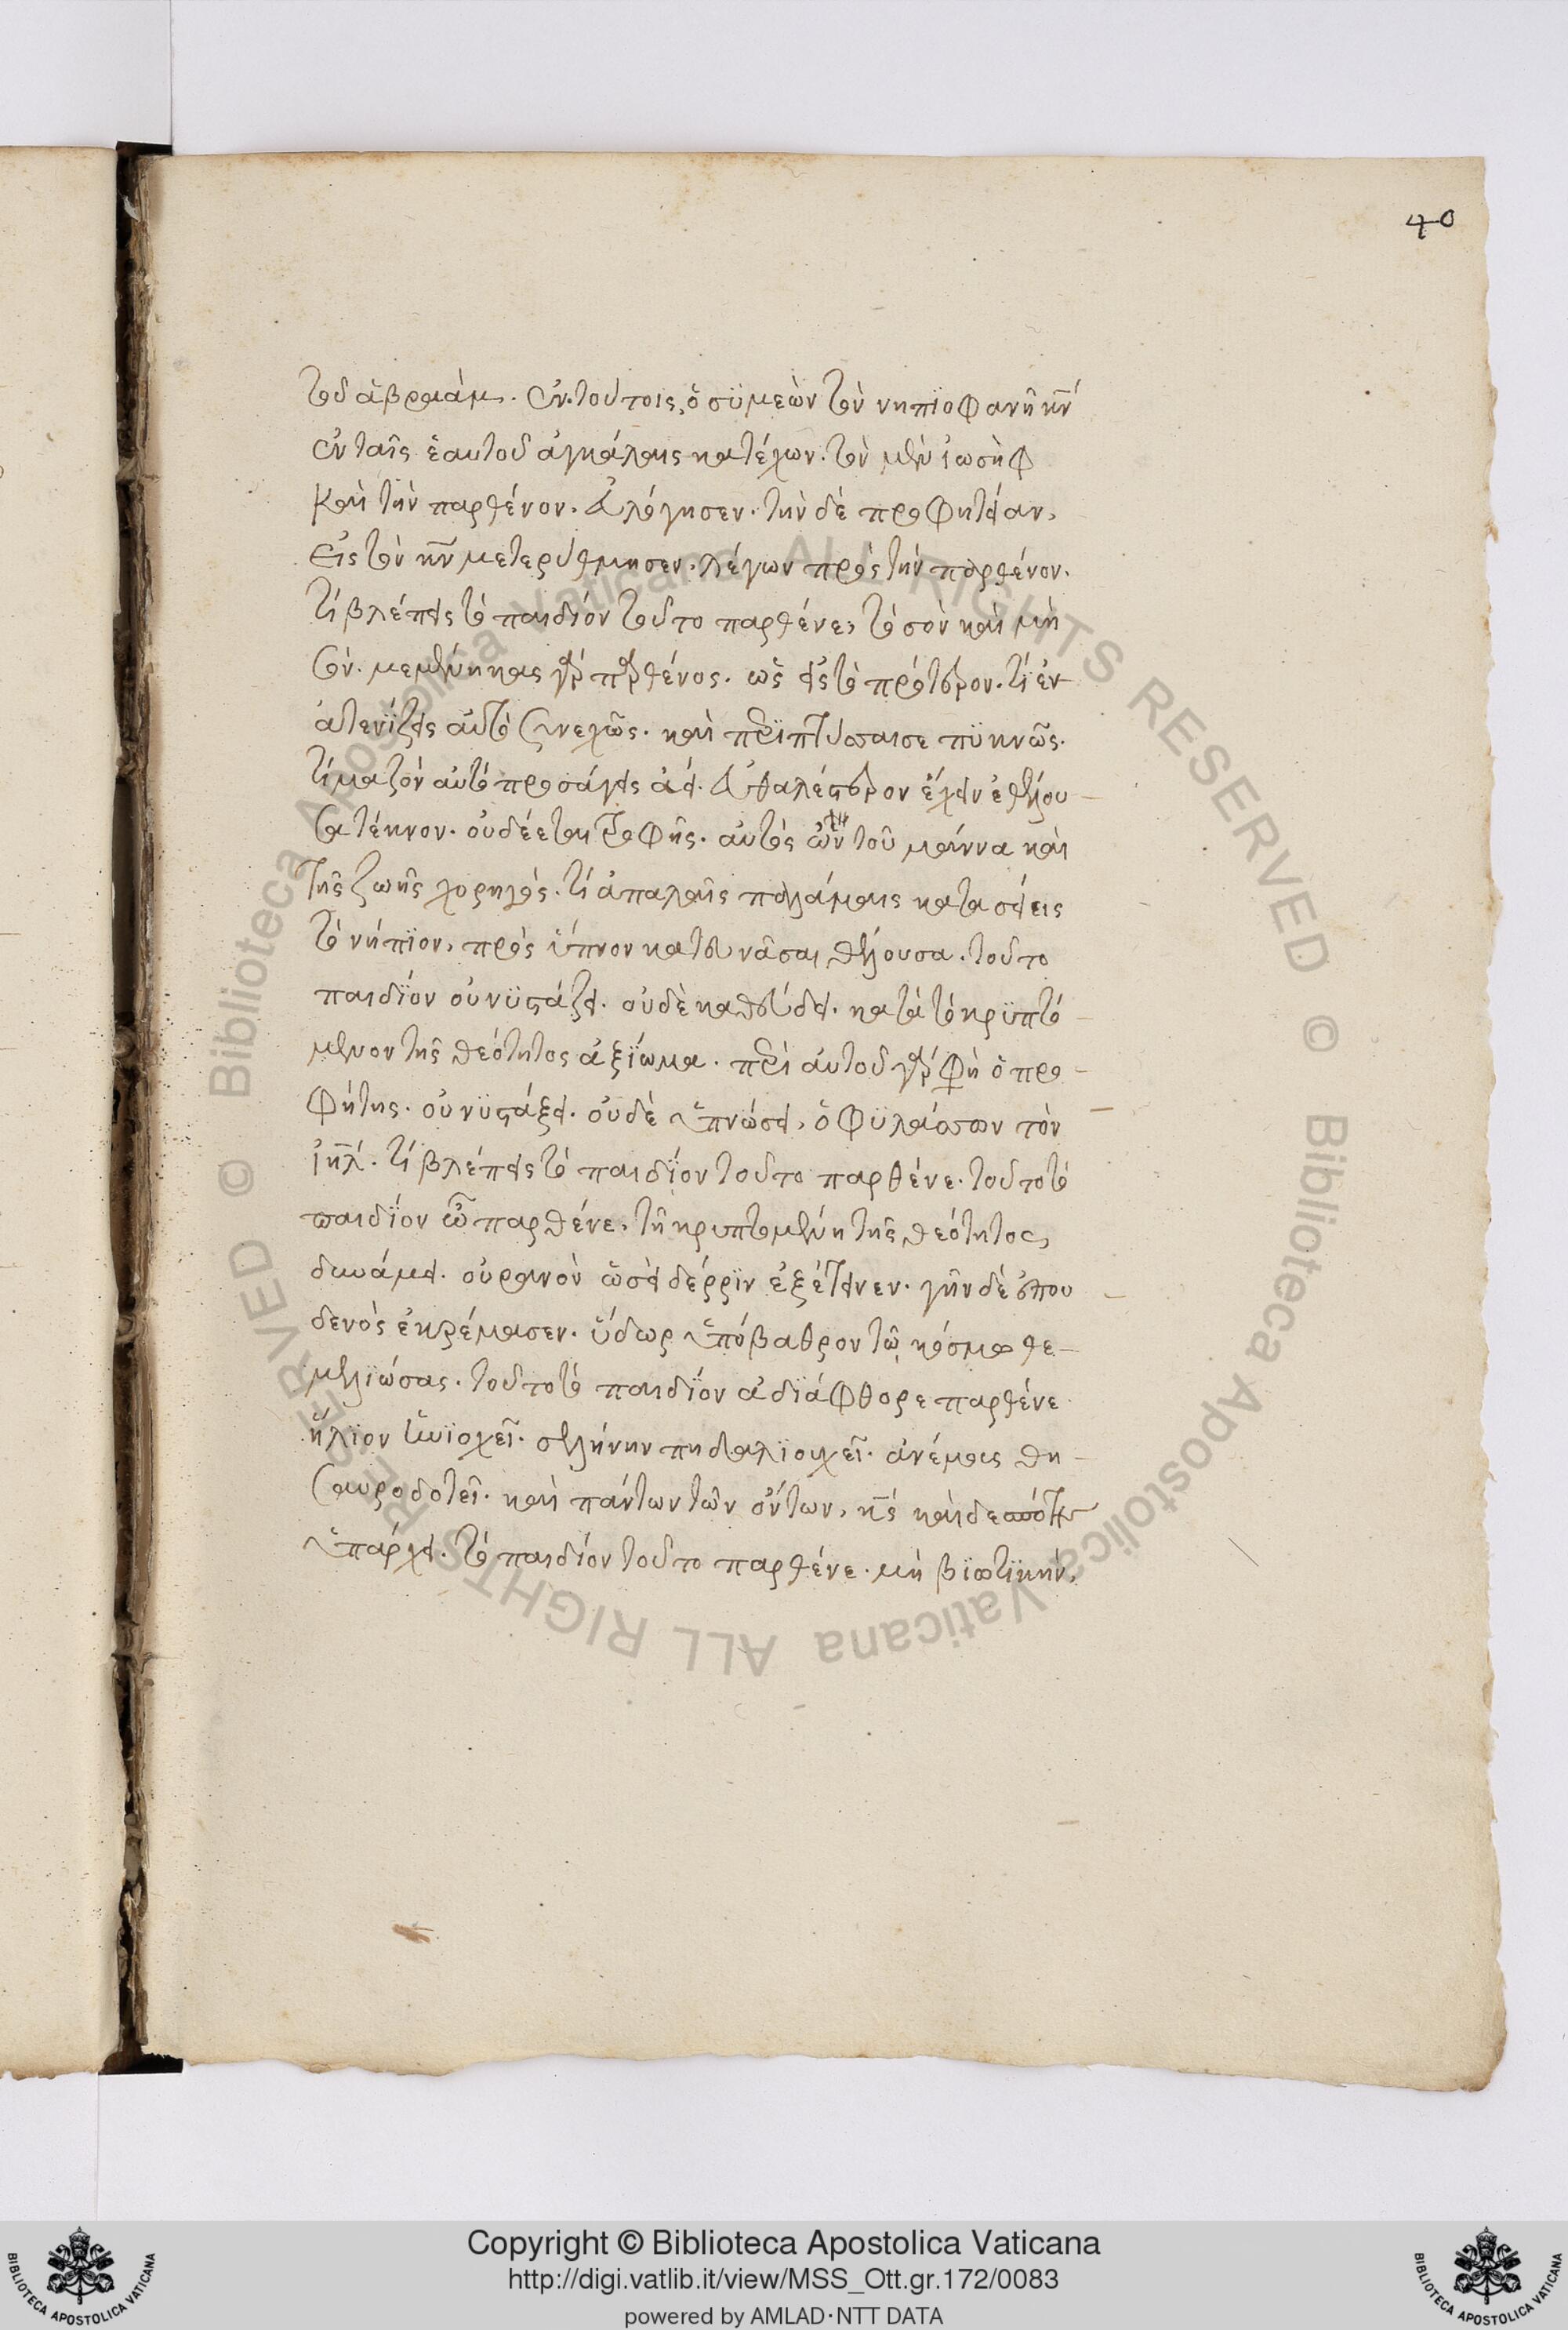 40
τοῦ ἀβραάμ. ἐν τούτοις, ὁ σϋμεὼν τὸν νηπϊοφανῆ κν̄
ἐν ταῖς ἑαυτοῦ ἀγκάλαις κατέχων. τὸν μὲν ἰωσὴφ
καὶ τὴν παρθένον. εὐλόγησεν. τὴν δὲ προφητείαν,
εἰς τὸν κν̄ μετερύθμησεν. λέγων πρὸς τὴν παρθένον.
τί βλέπεις τὸ παιδίον τοῦτο παρθένε, τὸ σὸν καὶ μὴ
σόν. μεμένηκας γὰρ παρθένος. ὡς εἰς τὸ πρότερον. τί ἐν
ατενίζεις αὐτὸ συνεχῶς. καὶ περϊπτύσσαισε πϋκνῶς.
τί μαζὸν αὐτὸ προσάγεις ἀεί. εὐθαλέστερον ἔχειν ἐθέλου
σα τέκνον. οὐδέεται τροφῆς. αὐτὸς ὢν τοῦ μάννα καὶ
τῆς ζωῆς χορηγός. τί ἁπαλαῖς παλάμαις κατασείεις
τὸ νήπϊον, πρὸς ὕπνον κατευνᾶσαι θέλουσα. τοῦτο
παιδΐον οὐ νϋστάζει. οὐδὲ καθεύδει. κατὰ τὸ κρϋπτό
μενον τῆς θεότητος ἀξΐωμα. περὶ αὐτοῦ γάρ φη ὁ προ
φήτης. οὐ νϋστάξει. οὐδὲ ὑπνώσει, ὁ φϋλάσσων τὸν
ἰηλ̄. τί βλέπεις τὸ παιδΐον τοῦτο παρθένε. τοῦτο τὸ
παιδΐον ὦ παρθένε, τῆ κρυπτομένη τῆς θεότητος,
δυνάμει. οὐρανὸν ὡσεὶ δέρρϊν ἐξέτεινεν. γῆν δὲ ἐπου
δενὸς ἐκρέμασεν. ὕδωρ ὑπόβαθρον τῷ κόσμω θε
μελϊώσας. τοῦτο τὸ παιδΐον ἀδϊάφθορε παρθένε
ἥλϊον ἡνϊοχεῖ. σελήνην πηδαλϊουχεῖ. ἀνέμοις θη
σαυροδοτεῖ. καὶ πάντων τῶν ὄντων, κς̄ καὶ δεσπότης
ὑπάρχει. τὸ παιδίον τοῦτο παρθένε. μὴ βϊωτϊκὴν,
Copyright © Biblioteca Apostolica Vaticana
http://digi.vatlib.it/view/MSS_Ott.gr.172/0083
powered by AMLAD·NTT DATA
BIBLIOTECA APOSTOLICA VATICANA
BIBLIOTECA APOSTOLICA VATICANA
© Biblioteca Apostolica Vaticana ALL RIGHTS RESERVED © Biblioteca Apostolica Vaticana ALL RIGHTS RESERVED